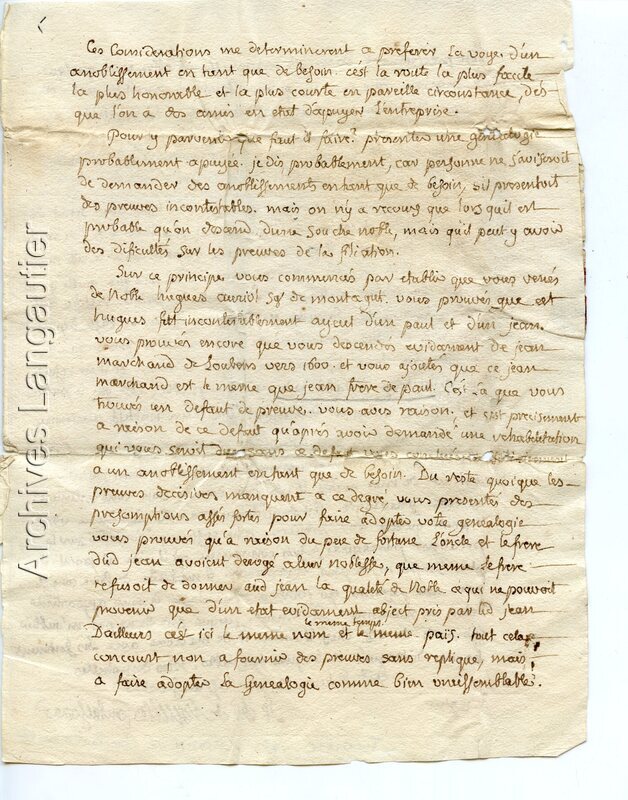 Ces Considerations me determinerent a preferer La voye d'un
anoblissement en tant que de besoin. c'est la route la plus facile
la plus honorable et la plus courte en pareille circonstance, des
que l'on a des amis en etat d'apuyer L'entreprise.
Pour y parvenir que faut il faire? presenter une genealogie
probablement apuyée. je dis probablement, car personne ne s'aviseroit
de demander des anoblissements entant que de besoin, s'il presentoit
des preuves incontestables. mais on n'y a recours que lors qu'il est
probable qu'on descend d'une souche noble, mais qu'il peut y avoir
des dificultés sur les preuves de la filiation.
Sur ce principe vous commencés par etablir que vous venés
de Noble hugues auriol Sgr de montagut. vous prouvés que cet
hugues fut incontestablement ayeul d'un paul et d'un jean.
vous prouvés encore que vous descendes evidament de jean
marchand de Loubens vers 1600. et vous ajoutés que ce jean
marchand est le meme que jean frere de paul. C'est la que vous
trouvés un defaut de preuve. vous aves raison. et c'est precisement
a raison de ce defaut qu'après avoir demandé une rehabilitation
qui vous seroit due sans ce defaut vous
a un anoblissement entant que de besoin. Du reste quoique les
preuves decisives manquent a ce degré, vous presentés des
presomptions assés fortes pour faire adopter votre genealogie
vous prouvés qu'a raison du peu de fortune L'oncle et le frere
dud jean avoient derogé a leur noblesse, que meme le frere
refusoit de donner aud jean la qualité de Noble ce qui ne pouvoit
provenir que d'un etat evidament abject pris par led jean
le meme temps
D'ailleurs c'est ici le meme nom et le meme païs. tout cela
concourt, non a fournir des preuves sans replique, mais
a faire adopter La Genealogie comme bien vraissemblable.
Archives Langautier